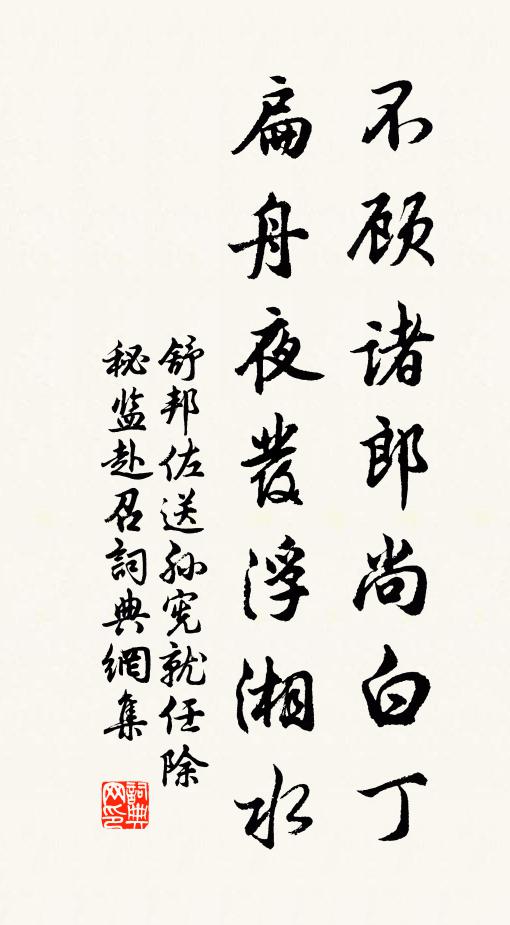 不顾诸郎尚白丁
扁舟夜发浮湘水
舒邦佐送孙宪就任除
秘监赴召词典網集
詞典网印